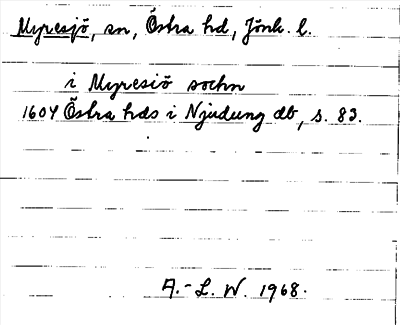 Myresjö, sn, Östra hd, Jönk. l.
i Myresiö sochn
1604 Östra hds i Njudung db, s. 83.
A.-L. W. 1968.